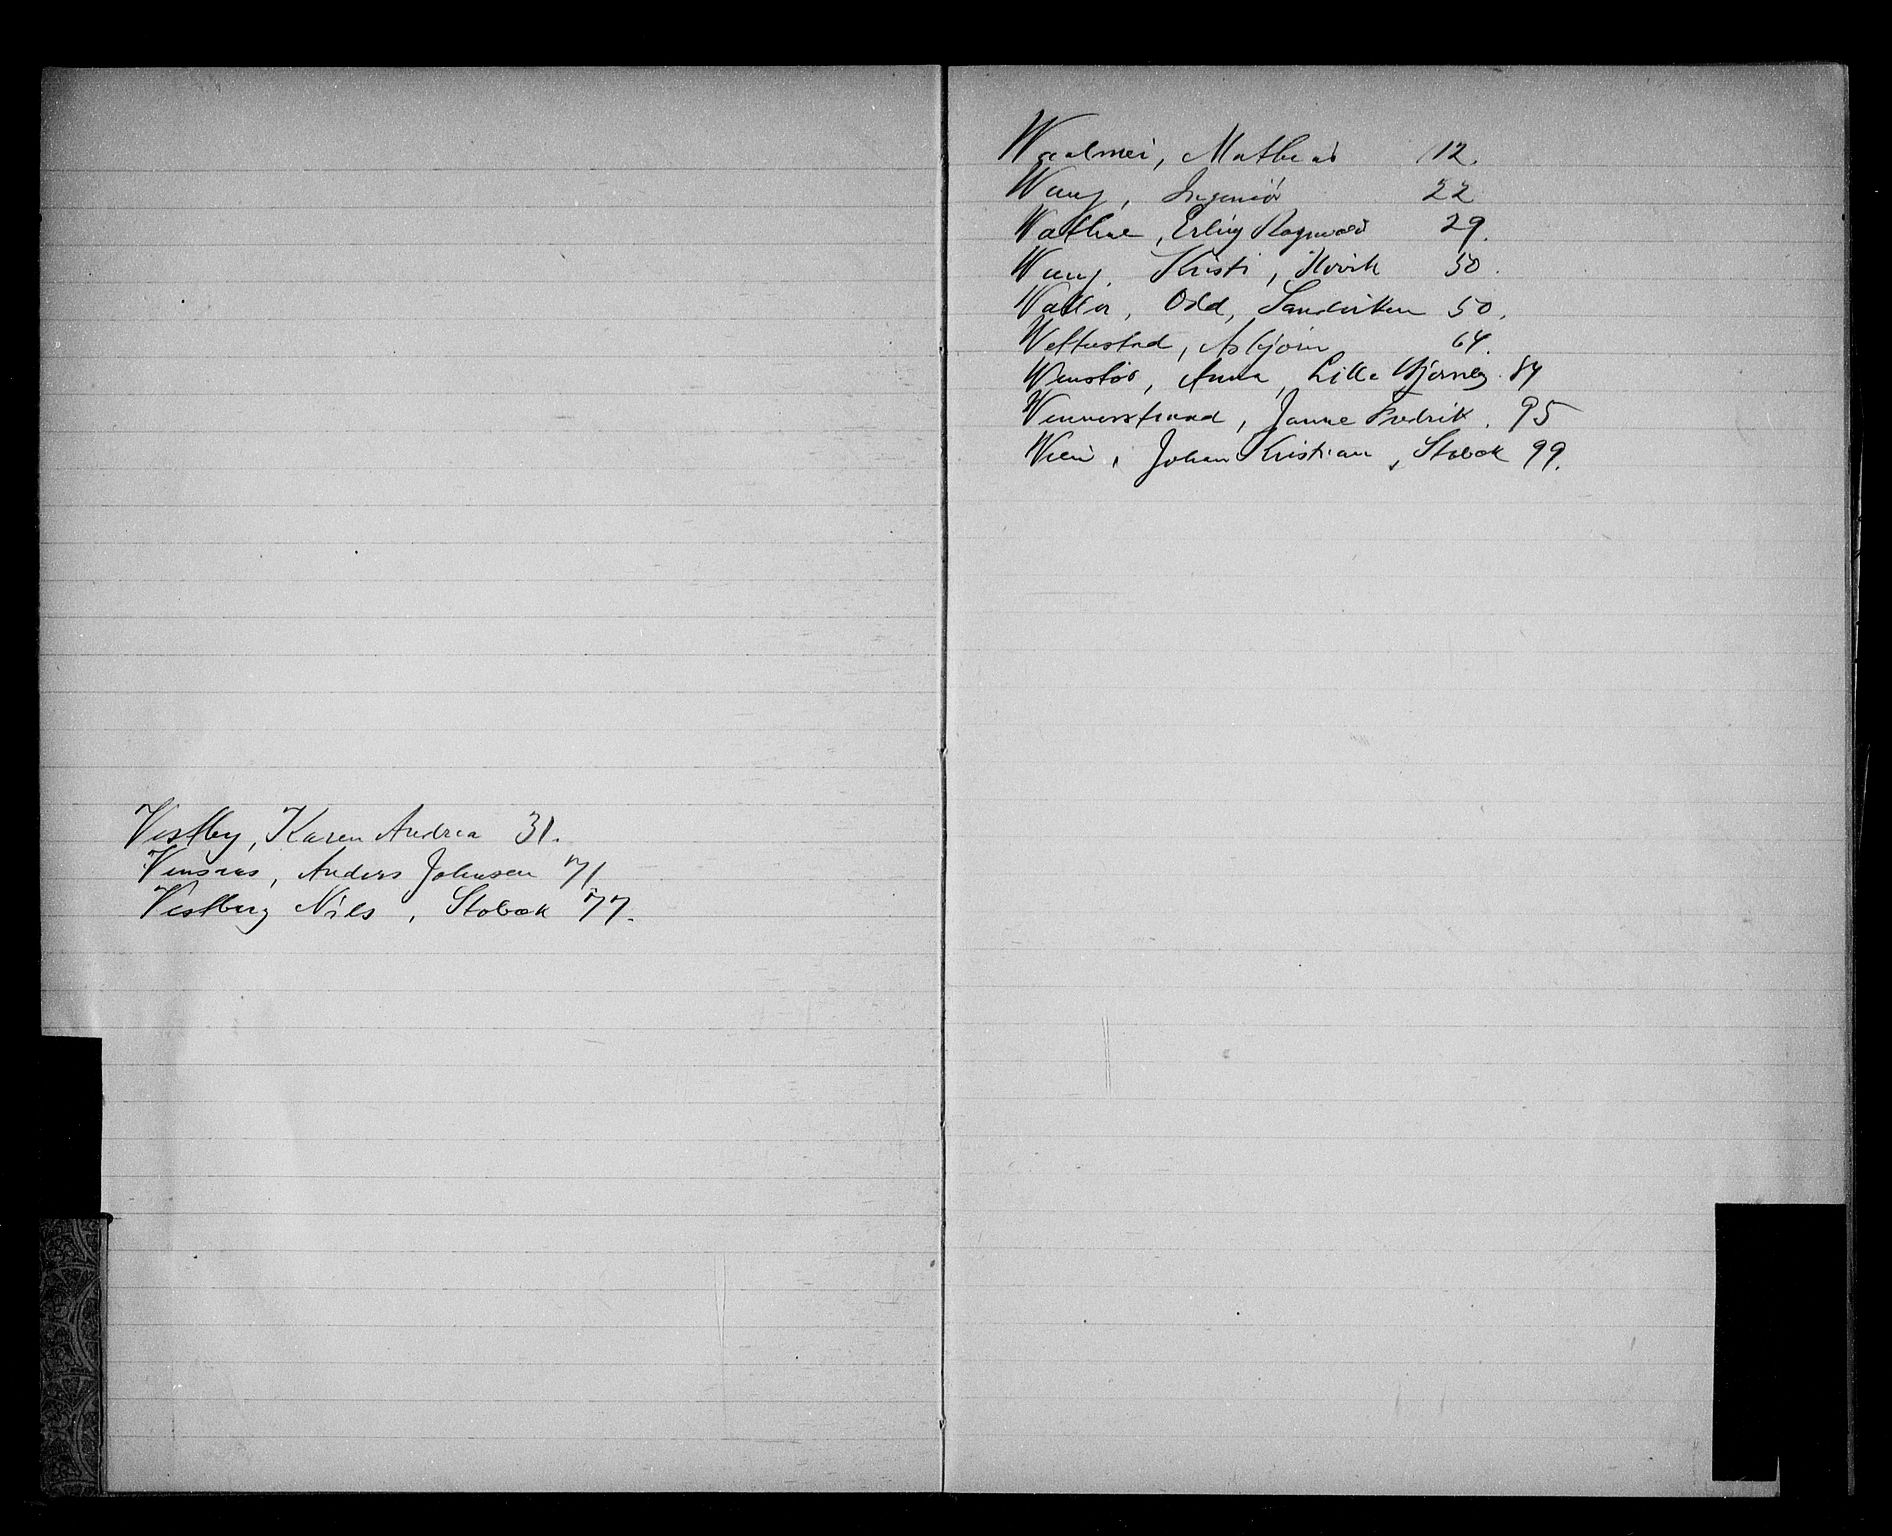 Vestby, Karen Andrea 31.
Vensås, Anders Johnsen 71
Vestberg Nils, Stabæk 77.
Mathias 12.
Wang, Ingeniør 22
Wathne, Erling Ragnvald 29.
Wang, Kristi, Høvik 50.
Odd, Sandviken 50.
Wettestad, Asbjørn 64.
Wenstøb, Anna, Lille Bjørneby. 84
Wennerstrand, Janne Fredrik. 95
Wein, Johan Kristian, Stabæk 99.